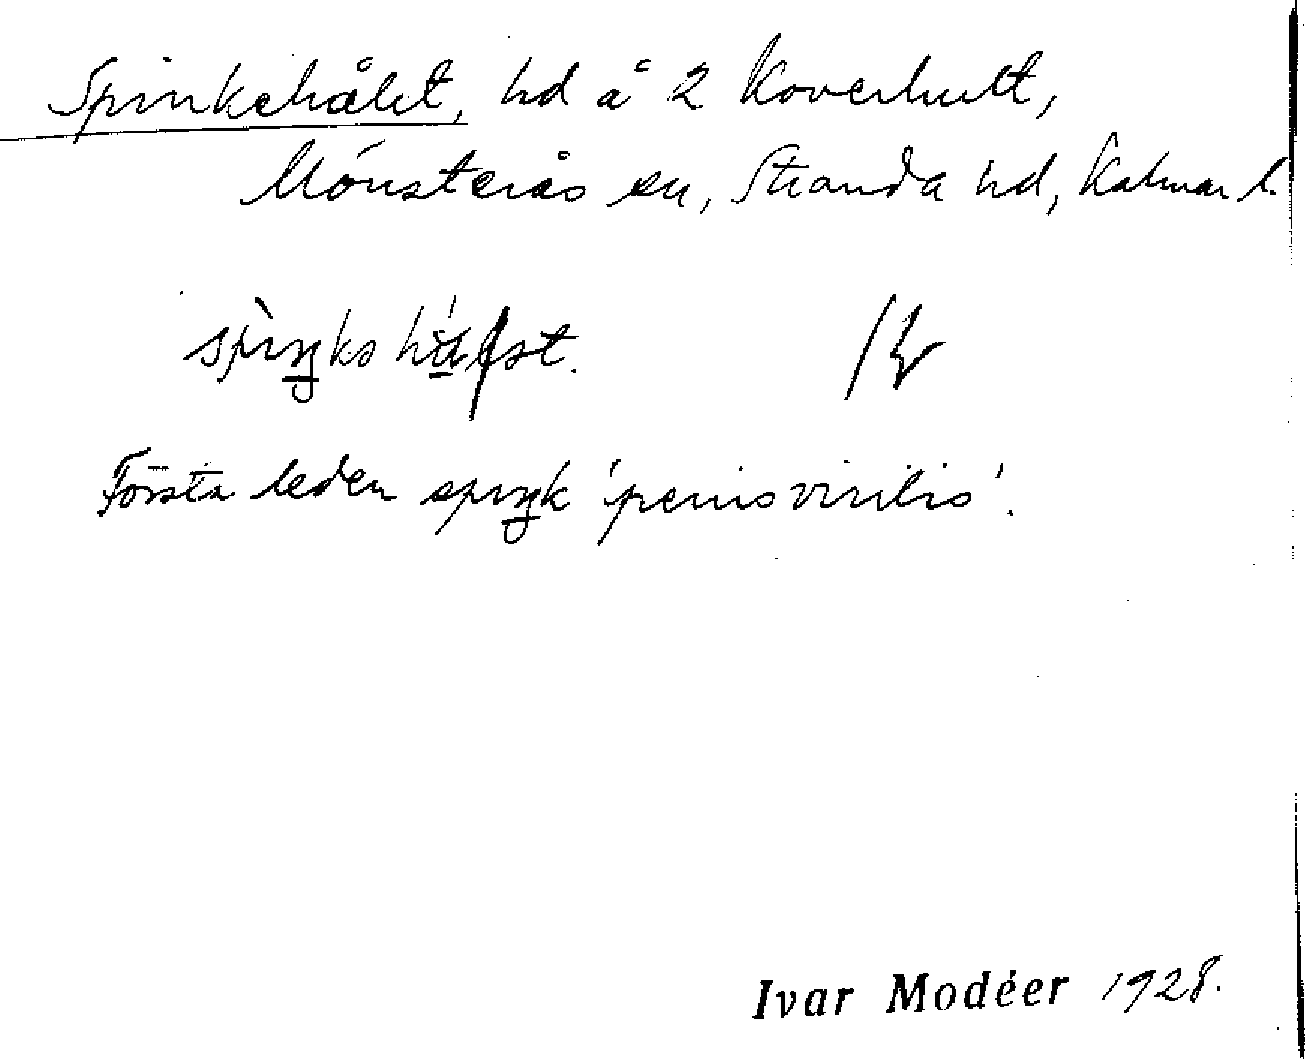 Spinkehålet, hd å 2 Koverhult,
Mönsterås sn, Stranda hd, Kalmar l.
Första leden spiŋk 'penis virilis'.
Ivar Modéer 1928.